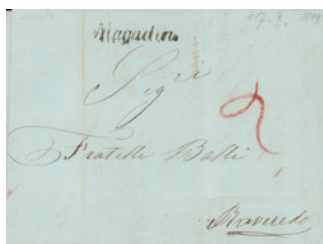 Magadino
Sig.ri
2
Fratelli Balli
Roveredo